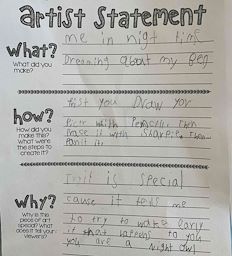 artist Statement
me in nigt time
what?
What did you make?
Dreming about my
how?
How did you make this? What were the steps to create it?
fist you Draw yor
with then
trace it with Sharpie then
Panit it.
why?
Why is this piece of art special? What does it tell your viewers?
it is special
cause it tells me
to try to wake early
if that happens to you
you are a night owl